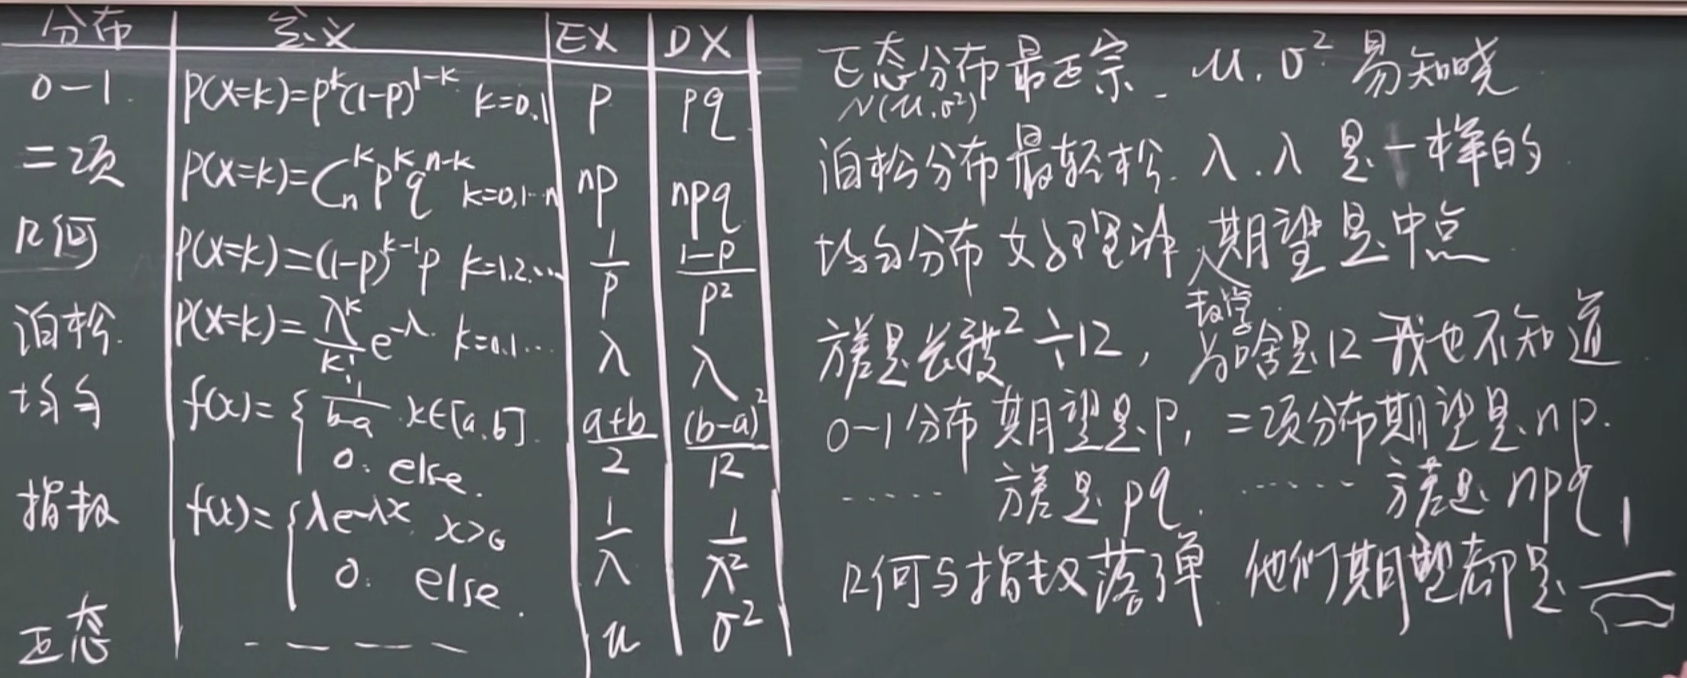 分布 定义 EX DX
0-1 P(X=k)=p^k(1-p)^{1-k} k=0.1 p pq
二项 P(X=k)=C_n^k p^k q^{n-k} k=0,1…n np npq
几何 P(X=k)=(1-p)^{k-1}p k=1.2… 1/p (1-p)/p²
泊松 P(X=k)=λ^k/k! e^{-λ} k=0.1… λ λ
均匀 f(x)={1/(b-a) x∈[a.b] (a+b)/2 (b-a)²/12
0. else.
指数 f(x)={λe^{-λx} x>0 1/λ 1/λ²
0. else.
正态 - - - - - μ σ²
正态分布最正宗 μ.σ² 易知晓
N(μ.σ²)
泊松分布最轻松 λ.λ 是一样的
均匀分布 期望是中点
数学
方差是长度²÷12, 为啥是12 我也不知道
0-1分布期望是p, 二项分布期望是np.
…… 方差是pq. …… 方差是npq
几何与指数 落了单 他们期望都是 1/